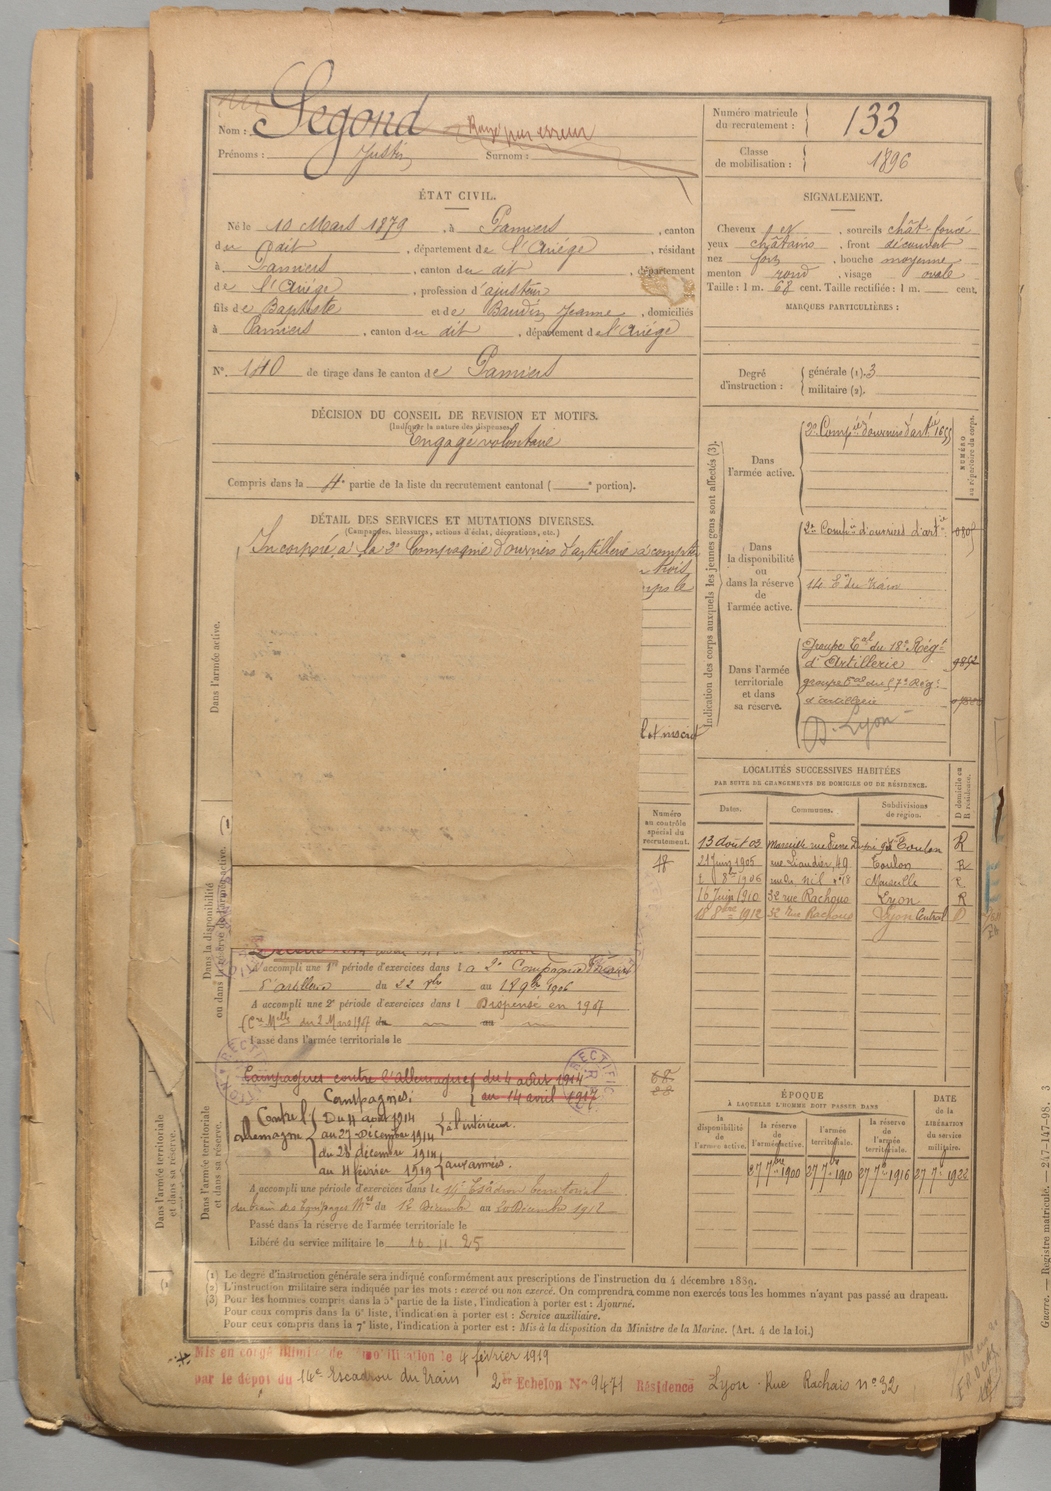 Nom : Segond Rayé par erreur
Prénoms : Justin Surnom :
Numéro matricule du recrutement : 133
Classe de mobilisation : 1896
ÉTAT CIVIL.
Né le 10 Mars 1879, à Pamiers, canton
du dit, département de l'Ariège, résidant
à Pamiers, canton du dit, département
de l'Ariège, profession d'ajusteur
fils de Baptiste et de Baudin Jeanne, domiciliés
à Pamiers, canton du dit, département de l'Ariège
N° 140 de tirage dans le canton de Pamiers
SIGNALEMENT.
Cheveux et, sourcils chât. foncé
yeux châtains, front découvert
nez fort, bouche moyenne
menton rond, visage ovale
Taille : 1 m. 68 cent. Taille rectifiée : 1 m. cent.
MARQUES PARTICULIÈRES :
Degré d'instruction : générale (1). 3
militaire (2).
DÉCISION DU CONSEIL DE REVISION ET MOTIFS.
(Indiquer la nature des dispenses.)
Engagé volontaire
Compris dans la 4e partie de la liste du recrutement cantonal ( e portion).
DÉTAIL DES SERVICES ET MUTATIONS DIVERSES.
(Campagnes, blessures, actions d'éclat, décorations, etc.)
Incorporé à la 2e Compagnie d'ouvriers d'artillerie à compter
trois
corps le
et inscrit
Dans l'armée active.
Dans la disponibilité ou dans la réserve de l'armée active.
Indication des corps auxquels les jeunes gens sont affectés (3).
NUMÉRO au répertoire du corps.
Dans l'armée active.
2e Compie d'ouvriers d'artie
Dans la disponibilité ou dans la réserve de l'armée active.
2e Compie d'ouvriers d'artie
14 En du Train
Dans l'armée territoriale et dans sa réserve.
Groupe Tal du 18e Régt
d'Artillerie
groupe Tal du Régt
d'artillerie
D. Lyon
LOCALITÉS SUCCESSIVES HABITÉES
PAR SUITE DE CHANGEMENTS DE DOMICILE OU DE RÉSIDENCE.
Dates. Communes. Subdivisions de région. D domicile ou R résidence.
13 août 03 Marseille rue Pierre Toulon R
21 Juin 1905 49 Toulon R
8bre 1906 rue du Nil n° 18 Marseille R
16 Juin 1910 32 rue Rachais Lyon R
18 8bre 1912 32 rue Rachais Lyon Central D
Numéro au contrôle spécial du recrutement.
A accompli une 1re période d'exercices dans la 2e Compagnie d'ouvriers
d'artillerie du 22 au 18 9bre 1906
A accompli une 2e période d'exercices dans l Dispensé en 1907
(Cre Mlle du 2 Mars 1907
Passé dans l'armée territoriale le
Dans l'armée territoriale et dans sa réserve.
Campagnes contre l'Allemagne du 4 août 1914
au 14 avril 1917
Campagnes.
Contre l'Allemagne
Du 4 août 1914
au 27 Décembre 1914 à l'intérieur.
du 28 décembre 1914
au 4 février 1919 aux armées.
A accompli une période d'exercices dans le 14e Escadron territorial
du train des Equipages Mres du 12 Décembre au 20 Décembre 1912
Passé dans la réserve de l'armée territoriale le
Libéré du service militaire le 10.11.25
ÉPOQUE
À LAQUELLE L'HOMME DOIT PASSER DANS
la disponibilité de l'armée active.
la réserve de l'armée active.
l'armée territoriale.
la réserve de l'armée territoriale.
DATE de la LIBÉRATION du service militaire.
27 7bre 1900 27 7bre 1910 27 7bre 1916 27 7bre 1922
(1) Le degré d'instruction générale sera indiqué conformément aux prescriptions de l'instruction du 4 décembre 1889.
(2) L'instruction militaire sera indiquée par les mots : exercé ou non exercé. On comprendra comme non exercés tous les hommes n'ayant pas passé au drapeau.
(3) Pour les hommes compris dans la 5e partie de la liste, l'indication à porter est : Ajourné.
Pour ceux compris dans la 6e liste, l'indication à porter est : Service auxiliaire.
Pour ceux compris dans la 7e liste, l'indication à porter est : Mis à la disposition du Ministre de la Marine. (Art. 4 de la loi.)
Mis en congé illimité de démobilisation le 4 février 1919
par le dépôt du 14e Escadron du Train 2er Echelon N° 9471 Résidence Lyon Rue Rachais n° 32
Guerre. — Registre matricule. — 247-147-98. 3